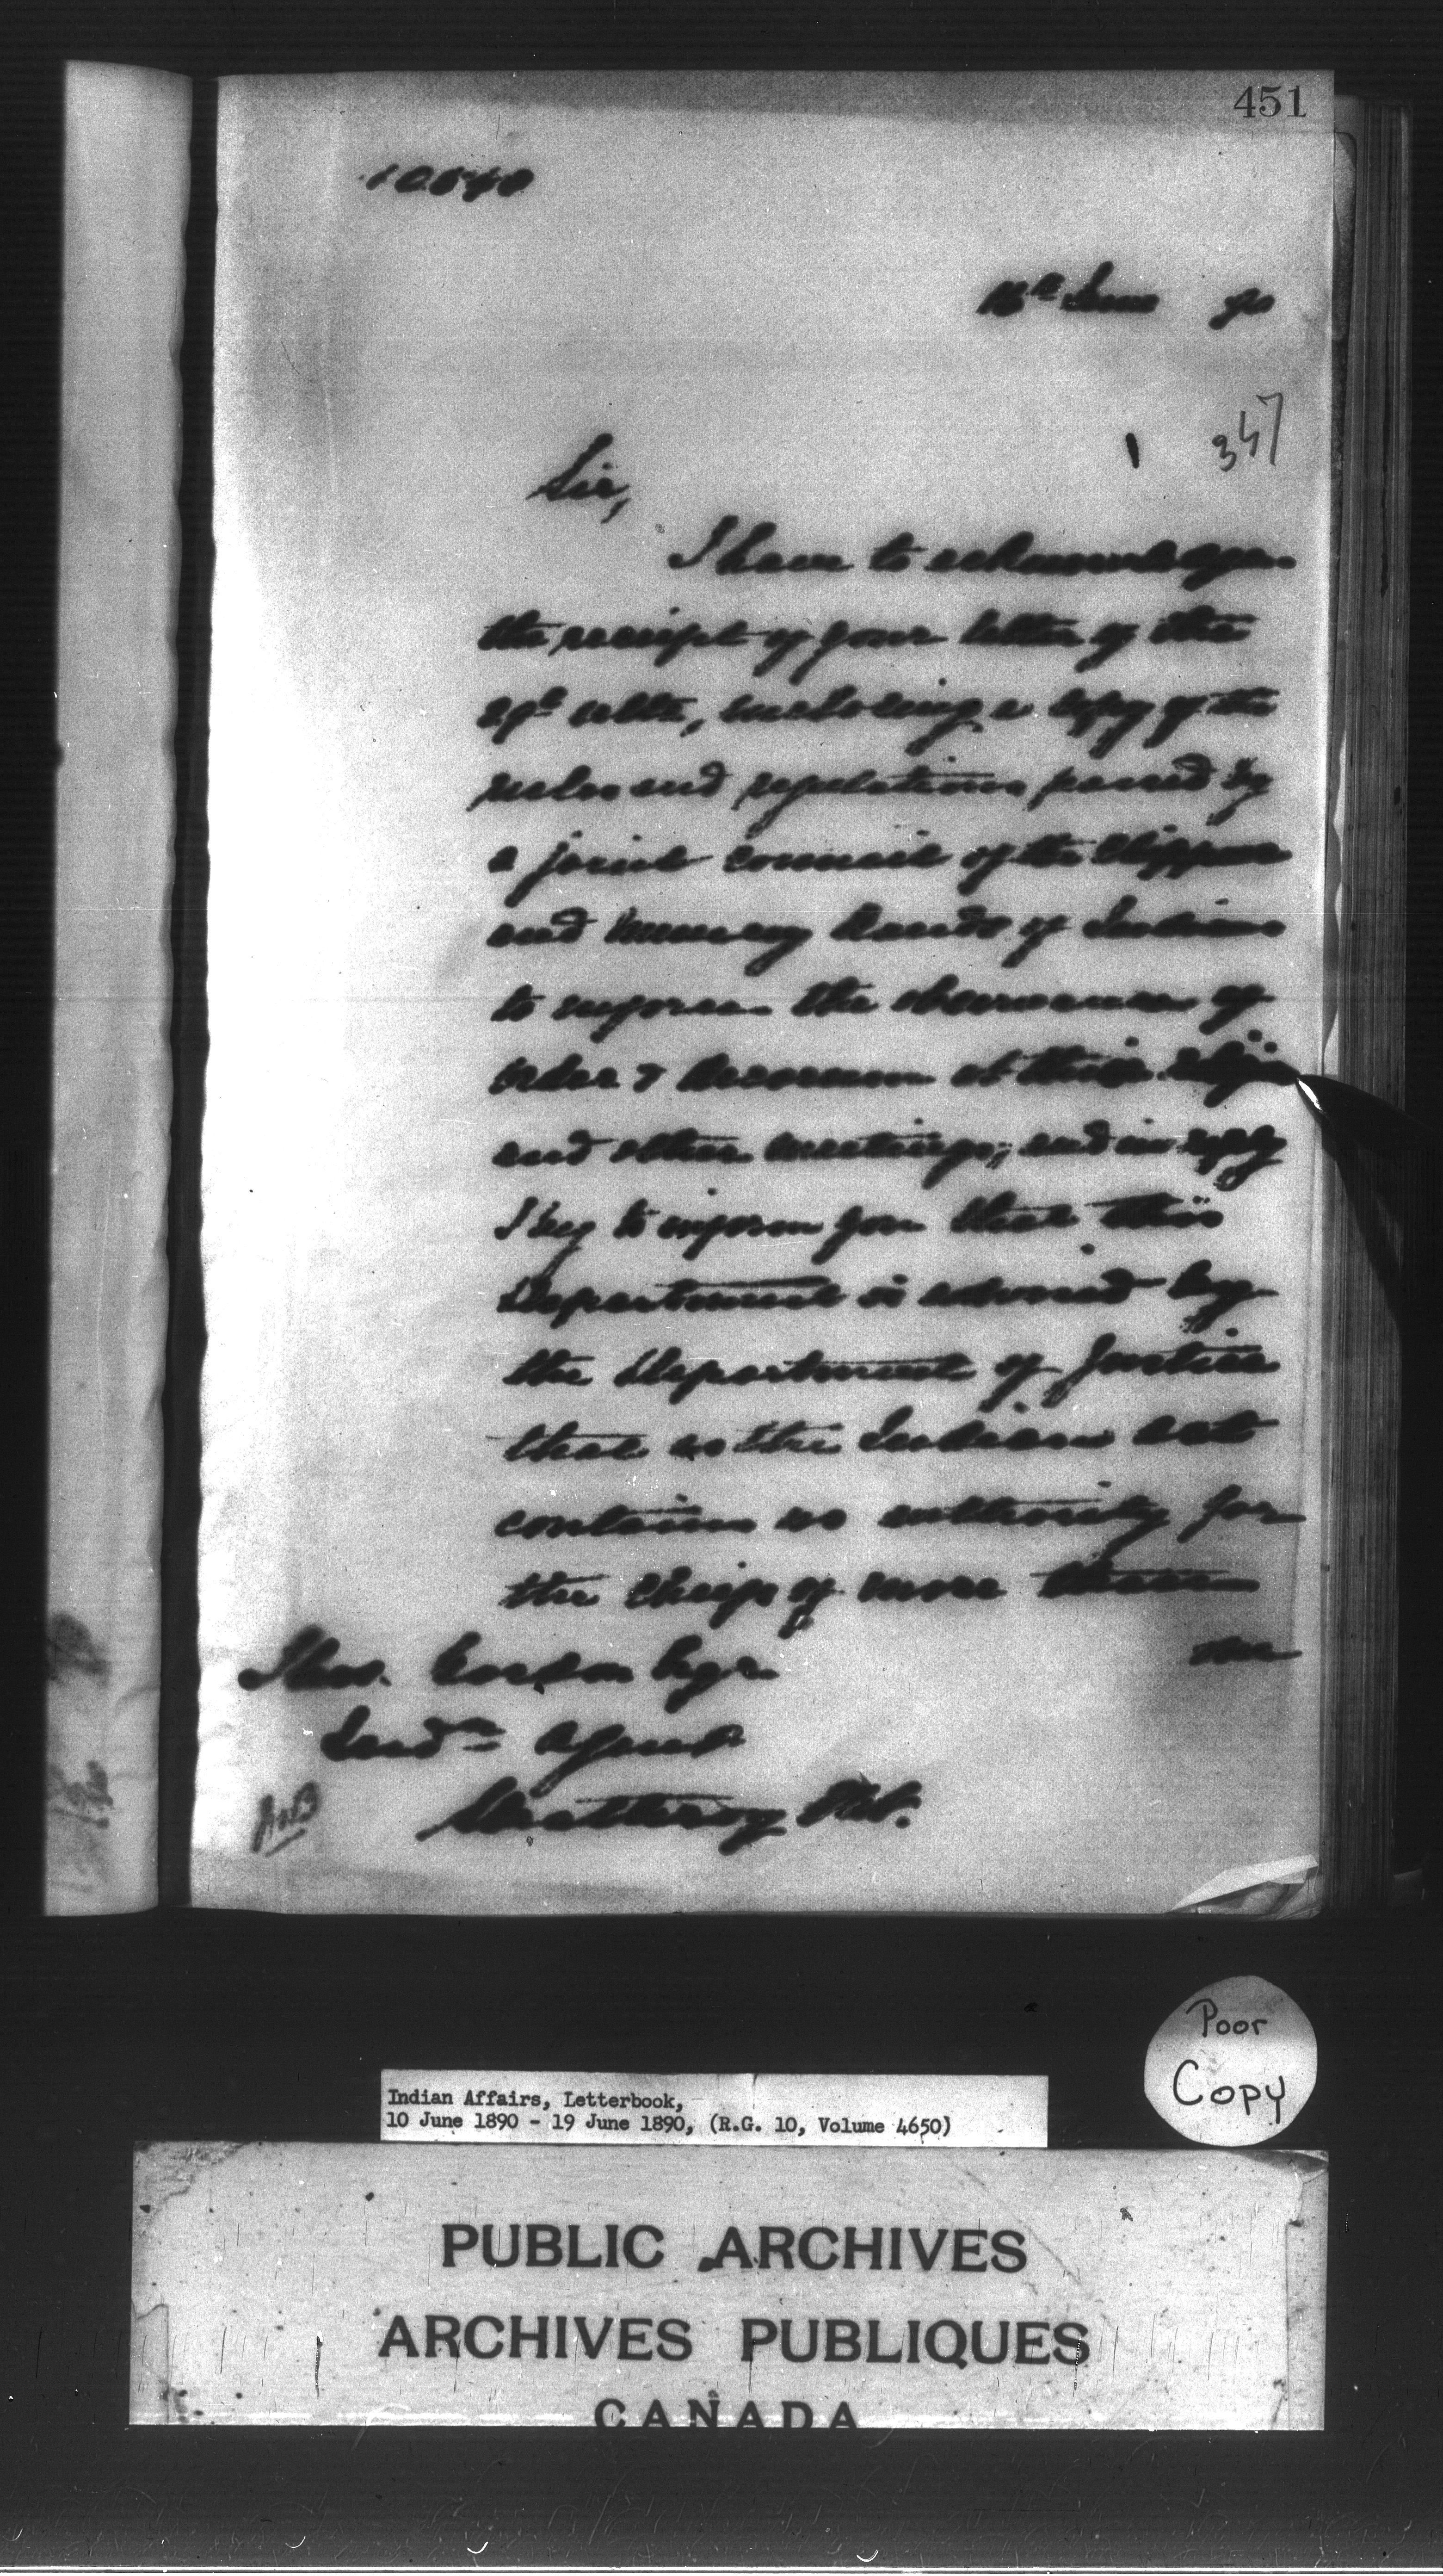 451
10640
16th June 90
347
Sir,
I have to acknowledge
the receipt of your letter of the
29th ulto, enclosing a copy of the
rules and regulations passed by
a joint council of the Chippewa
and Munsey Bands of Indians
to enforce the observance of
order & decorum at their
and other meetings; and in reply
I beg to inform you that this
Department is advised by
the Department of Justice
that as the Indian Act
contains no authority for
the Chiefs of more than
one
Thos. Gordon Esqr
Indn Agent
Strathroy Ont.
Poor
Copy
Indian Affairs, Letterbook,
10 June 1890 - 19 June 1890, (R.G. 10, Volume 4650)
PUBLIC ARCHIVES
ARCHIVES PUBLIQUES
CANADA